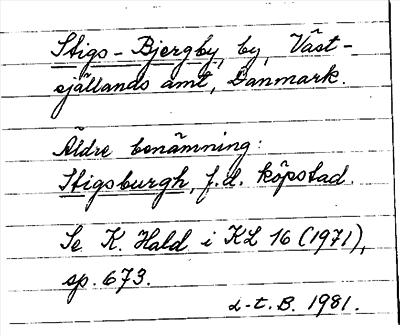 Stigs-Bjergby, by, Väst-
själlands amt, Danmark.
Äldre benämning:
Stigsburgh, f.d. köpstad.
Se K. Hald i KL 16 (1971),
sp. 673.
L-t. B. 1981.